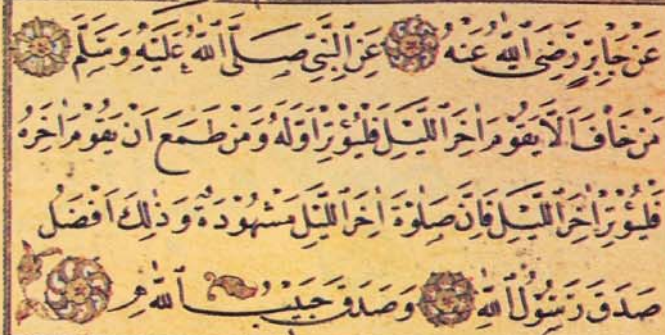 عَنْ جَابِرٍ رَضِيَ اللّٰهُ عَنْهُ عَنِ النَّبِيِّ صَلَّى اللّٰهُ عَلَيْهِ وَسَلَّمَ
مَنْ خَافَ اَلَّا يَقُوْمَ اٰخِرَ اللَّيْلِ فَلْيُوْتِرْ اَوَّلَهُ وَمَنْ طَمَعَ اَنْ يَقُوْمَ اٰخِرَهُ
فَلْيُوْتِرْ اٰخِرَ اللَّيْلِ فَاِنَّ صَلٰوةَ اٰخِرَ اللَّيْلِ مَشْهُوْدَةٌ وَذٰلِكَ اَفْضَلُ
صَدَقَ رَسُوْلُ اللّٰهِ وَصَدَقَ حَبِيْبُ اللّٰهِ